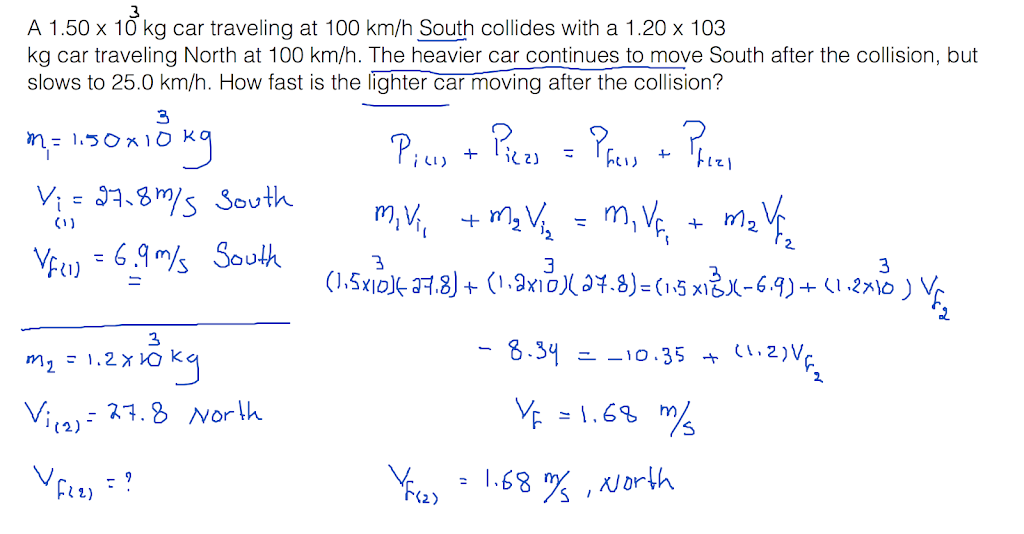 A 1.50 x 10³ kg car traveling at 100 km/h South collides with a 1.20 x 103
kg car traveling North at 100 km/h. The heavier car continues to move South after the collision, but
slows to 25.0 km/h. How fast is the lighter car moving after the collision?
m₁ = 1.50 x 10³ kg
Vi(1) = 27.8 m/s South
Vf(1) = 6.9 m/s South
m₂ = 1.2 x 10³ kg
Vi(2) = 27.8 North
Vf(2) = ?
Pi(1) + Pi(2) = Pf(1) + Pf(2)
m₁Vi₁ + m₂Vi₂ = m₁Vf₁ + m₂Vf₂
(1.5x10³)(-27.8) + (1.2x10³)(27.8) = (1.5x10³)(-6.9) + (1.2x10³) Vf₂
- 8.34 = -10.35 + (1.2)Vf₂
Vf = 1.68 m/s
Vf(2) = 1.68 m/s , North